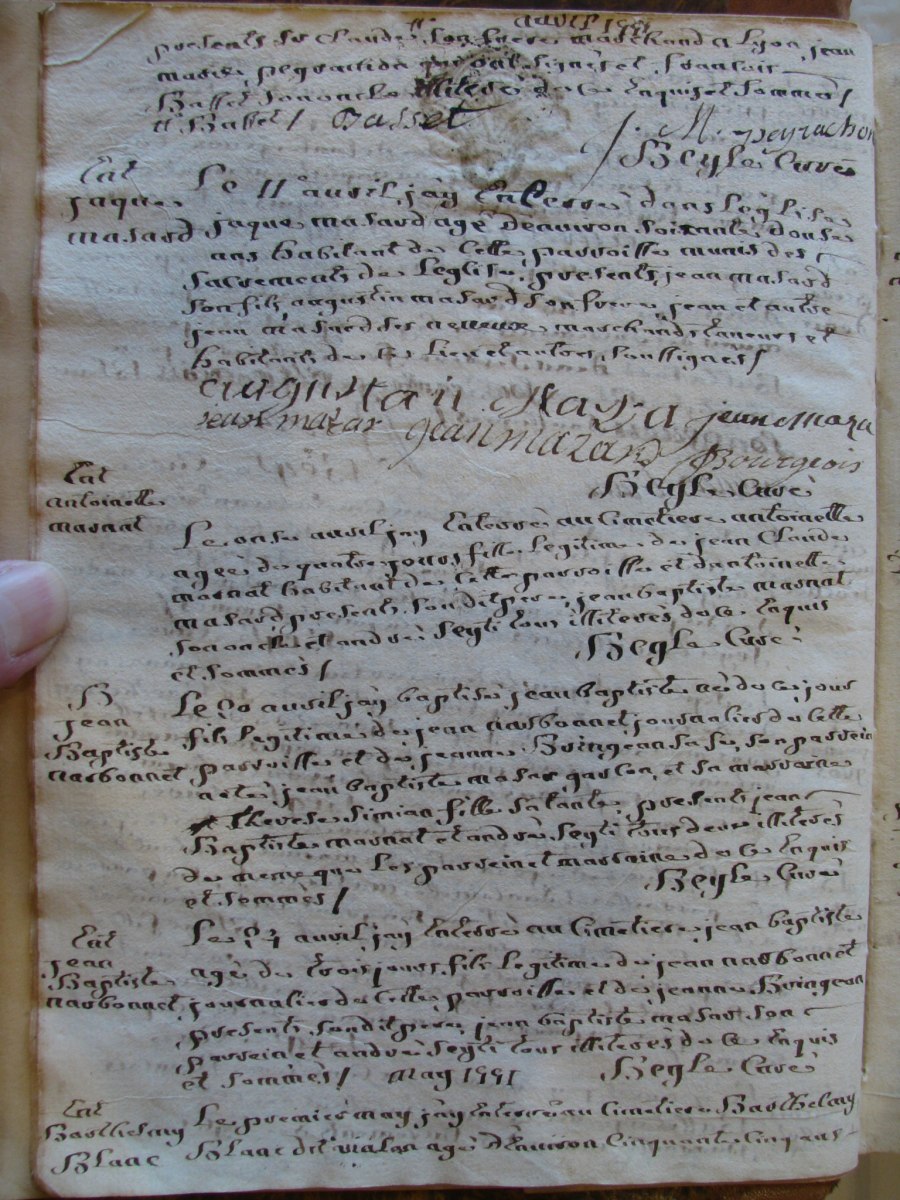 avril
presents sr Claude son frere marchand a Lyon, jean
marie peyrachon qui ont signés et francois
Basset son oncle illiteré de ce enquis et sommés /
Basset / Basset
J. M. peyrachon
Beyle Curé
Ent
jaque
masard
Le 11e avril j'ay enterré dans l'eglise
jaque masard agé d'environ soixante douse
ans habitant de cette parroisse munis des
sacrements de l'eglise, presents, jean masard
son fils, augustin masard son frere, jean et autre
jean masard ses neveux marchands taneurs et
habitants de ce lieu et autres soussignés /
augustain Maza jean Maza
jean mazar jean mazard Bourgeois
Beyle Curé
Ent
antoinette
marnat
Le onse avril j'ay enterré au cimetiere antoinette
agée de quatre jours fille legitime de jean Claude
marnat habitant de cette parroisse et d'antoinette
masard presents son dit pere, jean baptiste marnat
son oncle et andré seyti tous illiterés de ce enquis
et sommés /
Beyle Curé
B
jean
Baptiste
narbonnet
Le 20 avril j'ay baptisé jean baptiste né de ce jour
fils legitime de jean narbonnet journalier de cette
parroisse et de jeanne sa fe, son parrein
a eté jean baptiste masar garson, et sa marraine
therese simian fille presents jean
Baptiste marnat et andré seyti tous deux illiterés
de meme que les parrein et marraine de ce enquis
et sommés /
Beyle Curé
Ent
jean
Baptiste
narbonnet
Le 23 avril j'ay enterré au cimetiere jean baptiste
agé de trois jours, fils legitime de jean narbonnet
journalier de cette parroisse et de jeanne
presents sondit pere, jean baptiste masar son
parrein et andré seyti tous illiterés de ce enquis
et sommés /
Beyle Curé
may 1771
Ent
Barthelmy
Blanc
Le premier may j'ay enterré au cimetiere Barthelmy
Blanc dit vialon agé d'environ cinquante cinq ans